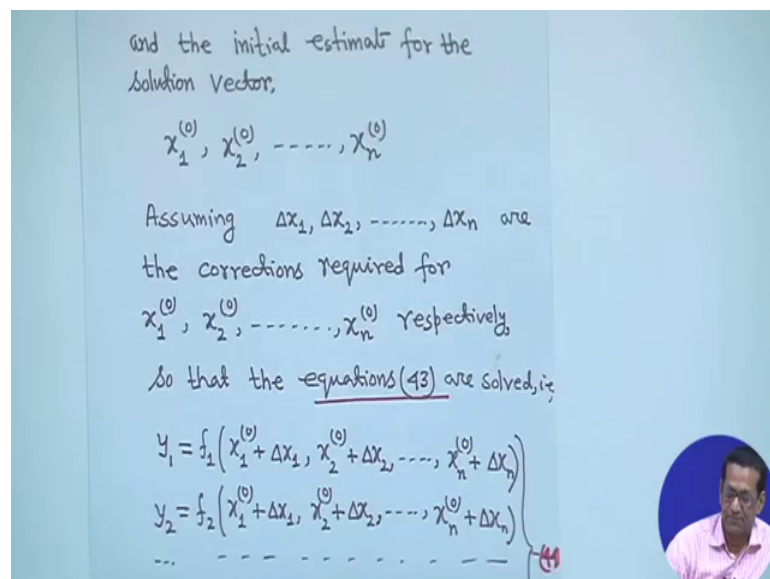 and the initial estimat for the
solution vector,
x₁⁽⁰⁾, x₂⁽⁰⁾, -----, xₙ⁽⁰⁾
Assuming Δx₁, Δx₂, ------, Δxₙ are
the corrections required for
x₁⁽⁰⁾, x₂⁽⁰⁾, -------, xₙ⁽⁰⁾ respectively,
so that the equations (43) are solved, i.e,
y₁ = f₁(x₁⁽⁰⁾ + Δx₁, x₂⁽⁰⁾ + Δx₂, ----, xₙ⁽⁰⁾ + Δxₙ)
y₂ = f₂(x₁⁽⁰⁾ + Δx₁, x₂⁽⁰⁾ + Δx₂, ----, xₙ⁽⁰⁾ + Δxₙ)
... --- - - - - - - - -- --